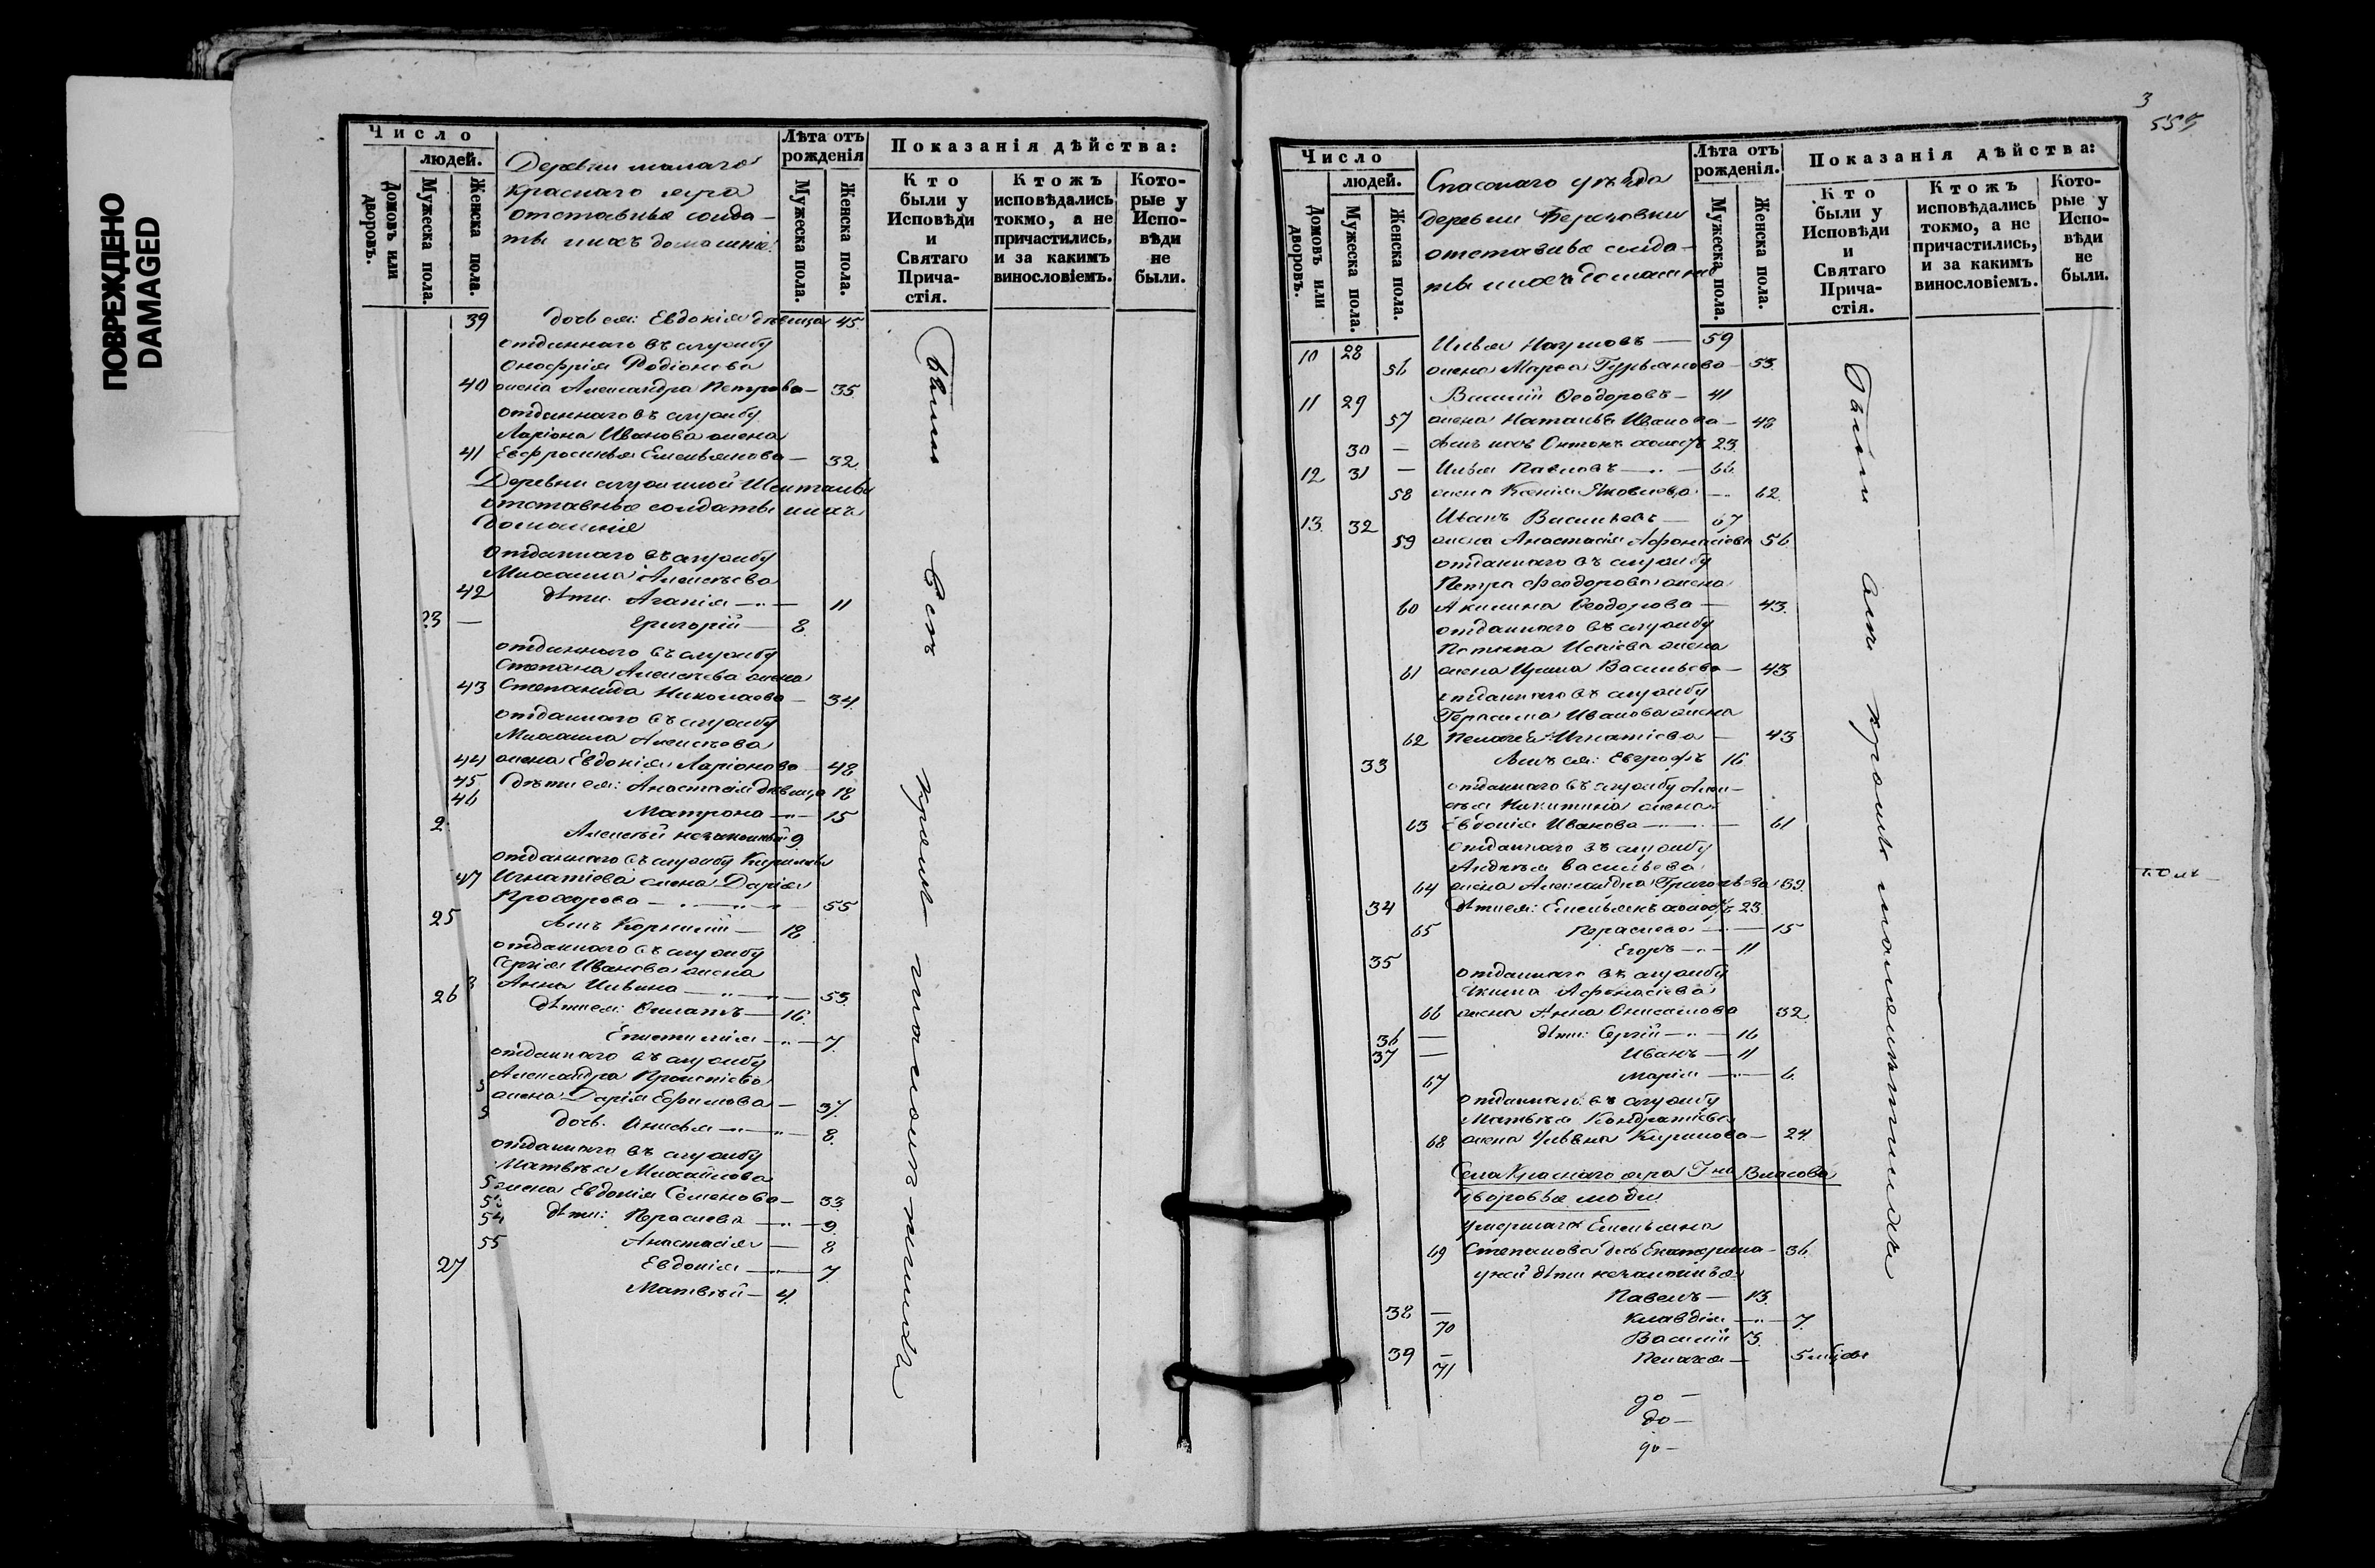 ПОВРЕЖДЕНО
DAMAGED
Число
людей.
Домовъ или дворовъ.
Мужеска пола.
Женска пола.
Деревни малаго
Краснаго яра
отставные солда-
ты и ихъ домашніе:
Лѣта отъ рожденія
Мужеска пола.
Женска пола.
Показанія дѣйства:
Кто были у Исповѣди и Святаго Прича-стія.
Ктожъ исповѣдались токмо, а не причастились, и за какимъ винословіемъ.
Кото-рые у Испо-вѣди не были.
39 дочь ея: Евдокія дѣвица 45
отданнаго въ службу
Онофрія Родіонова
40 жена Александра Петрова — 35
отданнаго въ службу
Ларіона Иванова жена
41 Евфросинья Емельянова — 32
Деревни
отставные солдаты и ихъ
домашніе
отданнаго въ службу
Михаила Алексѣева
42 дѣти: Агапія — 11
23 — Григорій — 8
отданнаго въ службу
Степана Алексѣева жена
43 Степанида Николаева — 34
отданнаго въ службу
Михаила Алексѣева
44 жена Евдокія Ларіонова 48
45 дѣти ея: Анастасія дѣвица 18
46 Матрона — 15
2 Алексѣй незаконный 9
отданнаго въ службу Кирилы
47 Игнатіева жена Дарія
Прохорова — 55
25 сынъ Корнилій — 18
отданнаго въ службу
Сергія Иванова жена
Анна Ильина — 53
26 дѣти ея: Филатъ — 16
Епистимія — 7
отданнаго въ службу
Александра Прокопіева
жена Дарія Ефимова — 37
дочь: Анисья — 8
отданнаго въ службу
Матвѣя Михайлова
жена Евдокія Семенова — 33
54 дѣти: Параскева — 9
55 Анастасія — 8
Евдокія — 7
27 Матвѣй — 4
Были всѣ кромѣ малолѣтнихъ
3
559
Число
людей.
Домовъ или дворовъ.
Мужеска пола.
Женска пола.
Спаскаго уѣзда
деревни
отставные солда-
ты и ихъ домашніе
Лѣта отъ рожденія.
Мужеска пола.
Женска пола.
Показанія дѣйства:
Кто были у Исповѣди и Святаго Прича-стія.
Ктожъ исповѣдались токмо, а не причастились, и за какимъ винословіемъ.
Кото-рые у Испо-вѣди не были.
10 28 Илья Наумовъ — 59
56 жена Марѳа Гурьянова — 53
11 29 Василій Ѳеодоровъ — 41
57 жена Наталья Иванова — 48
30 — сынъ ихъ Антонъ холостъ 23
12 31 — Илья Павловъ — 66
58 жена Ксенія Яковлева — 62
13 32 Иванъ Васильевъ — 67
59 жена Анастасія Афонасіева 56
отданнаго въ службу
Петра Ѳеодорова жена
60 Акилина Ѳеодорова — 43
отданнаго въ службу
жена
61 жена Васильева — 43
отданнаго въ службу
Герасима Иванова жена
62 Пелагея Игнатіева — 43
33 сынъ ея: Евграфъ 16
отданнаго въ службу Алек-
сѣя Никитина жена
63 Евдокія Иванова — 61
отданнаго въ службу
Андрея Васильева
64 жена Александра Григорьева 39
34 дѣти ея: Емельянъ холостъ 23
65 Параскева — 15
35 Егоръ — 11
отданнаго въ службу
Якима Афонасіева
66 жена Анна Онисимова 32
36 — дѣти: Сергій — 16
37 — Иванъ — 11
67 Марія — 6
отданнаго въ службу
Матвѣя Кондратіева
68 жена Ульяна Кирилова — 24
Села Краснаго яра Гна Власова
дворовые люди
умершаго Емельяна
69 Степанова дочь Екатерина — 36
у ней дѣти незаконныя:
38 — Павелъ — 13
70 Клавдія — 7
39 — Василій 3
71 Пелагея — 5 мѣсяц
до —
до —
до —
Были всѣ кромѣ малолѣтнихъ